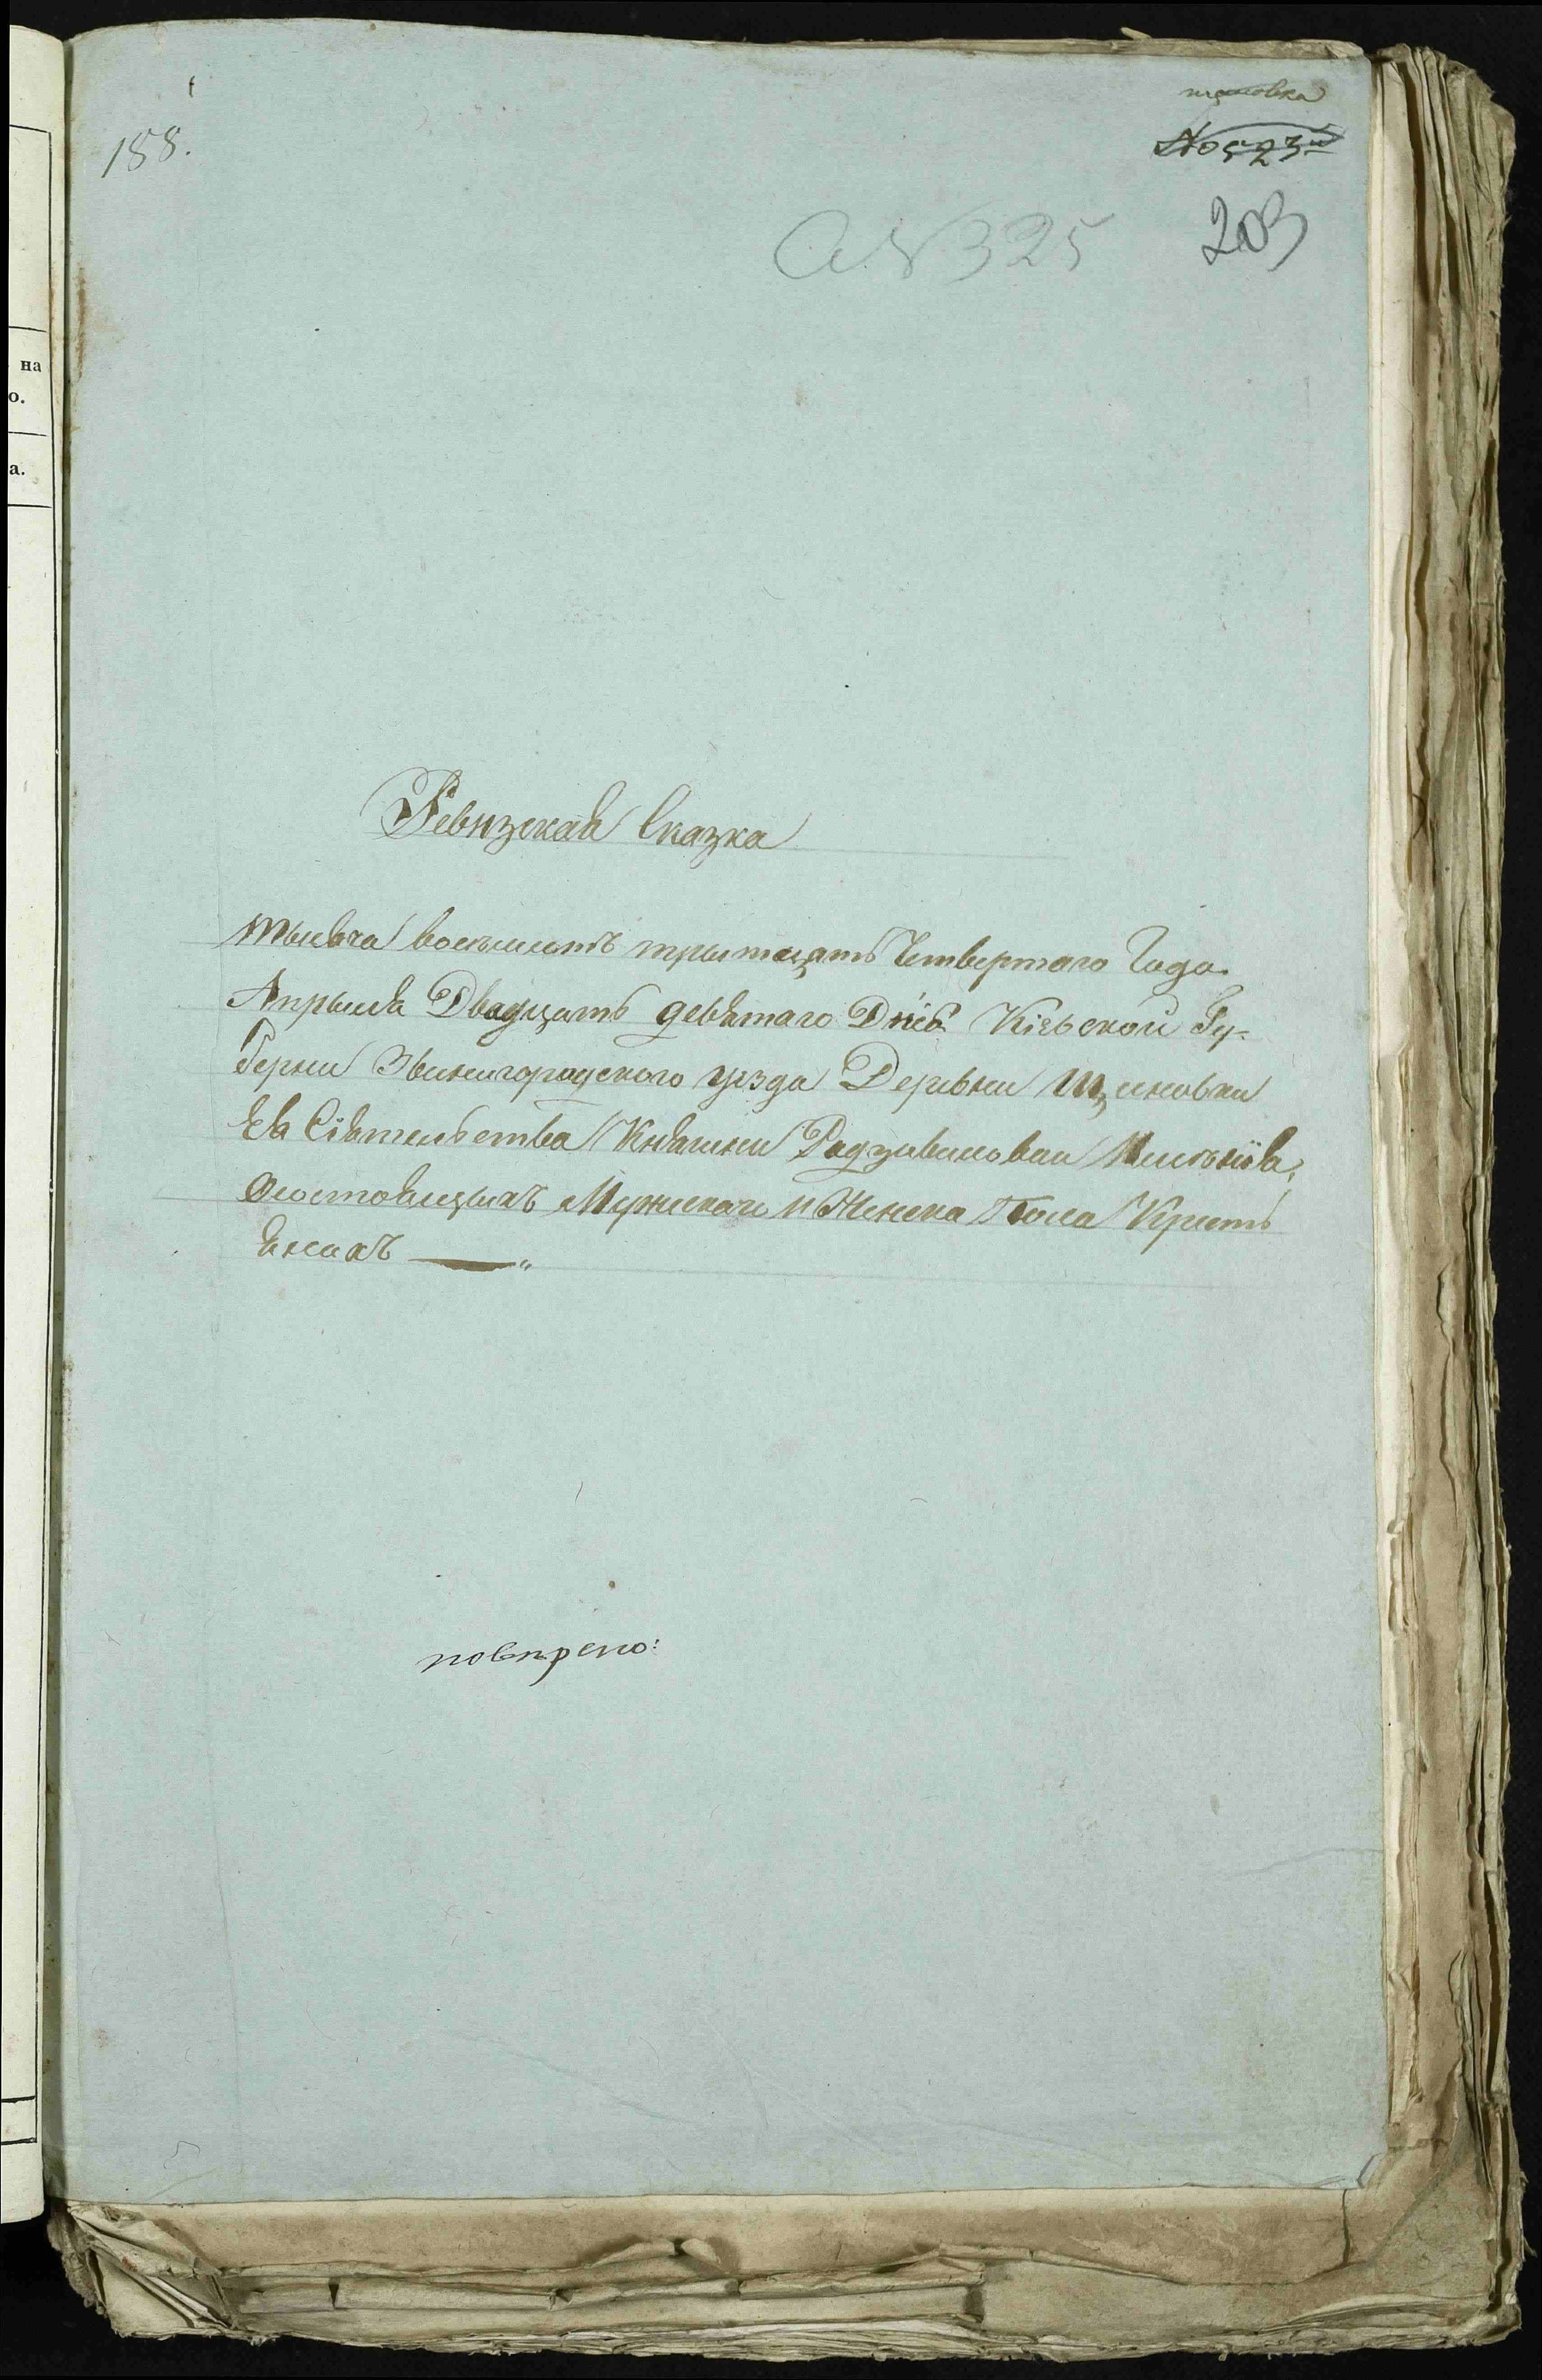 188.
щеновка
№ 523
203
№ 325
на
о.
а.
Ревизская Сказка
тысяча восемьсотъ трытцать Четвертаго Года
Апрыля Двадцать девятаго Дня Кіевской Гу-
берни Звенигородского уезда Деревни Щеновки
Ея Сіятельства Княгини Радзивиловои Имѣнія,
о состоящихъ Мужеска и Женска Пола Кресть
янахъ —„
поверено: